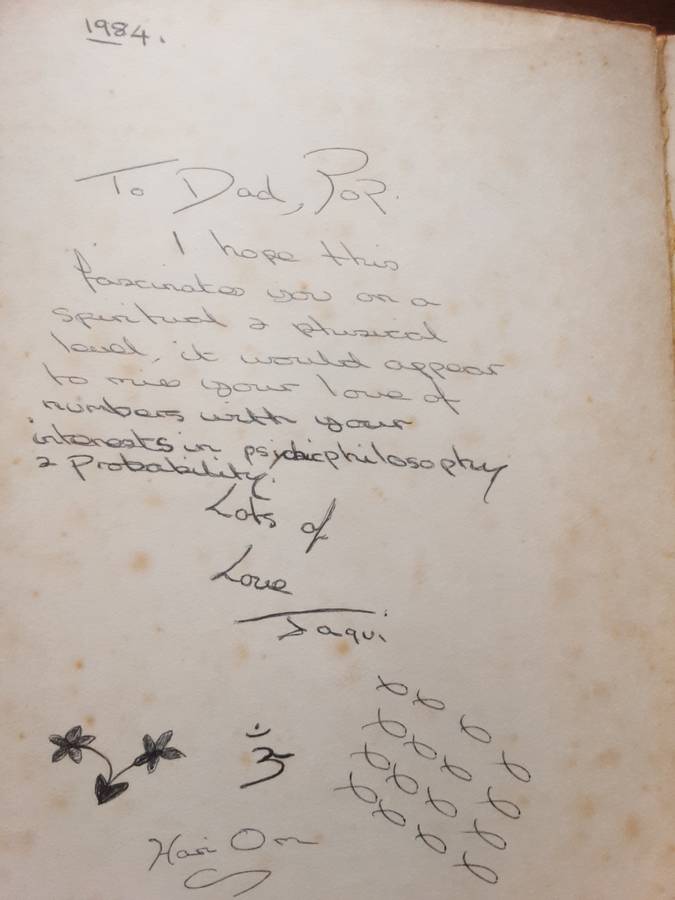 1984.
To Dad, Pop.
I hope this
fascinates you on a
spiritual & physical
level, it would appear
to mix your love of
numbers with your
interests in psychic philosophy
& Probability.
Lots of
Love
Jaqui
ॐ
Hari Om